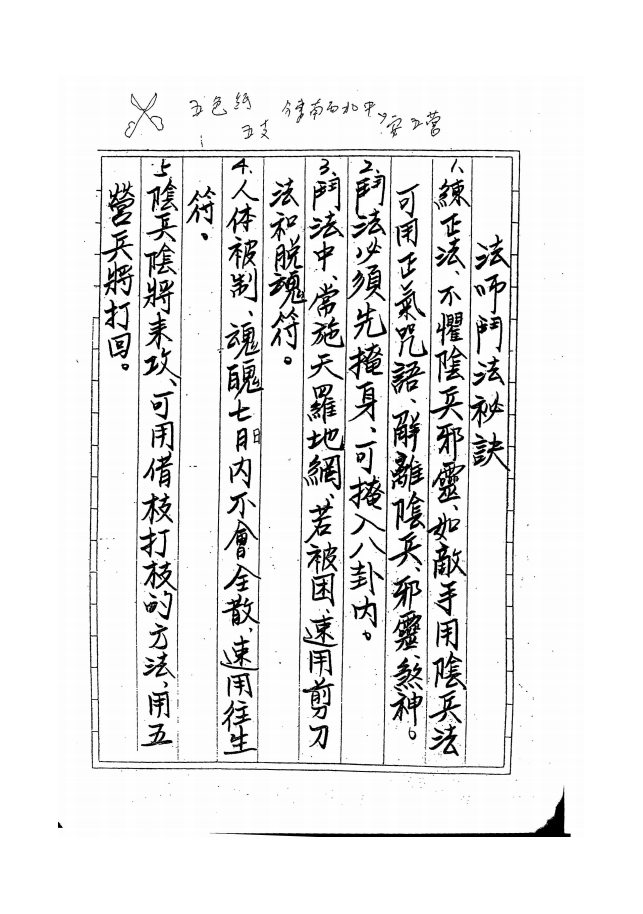 五色紙
五支
東南西北中
安五營
法師鬥法祕訣
1、練正法、不懼陰兵邪靈、如敵手用陰兵法
可用正氣咒語、解離陰兵、邪靈、煞神。
2、鬥法必須先掩身、可掩入八卦內。
3、鬥法中、常施天羅地網、若被困、速用剪刀
法和脫魂符。
4、人体被制、魂魄七日內不會全散、速用往生
符。
5、陰兵陰將來攻、可用借枝打枝的方法、用五
營兵將打回。